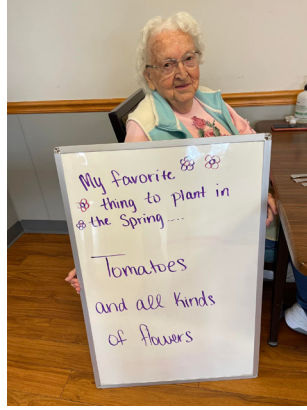 My favorite
thing to plant in
the Spring....
Tomatoes
and all kinds
of flowers